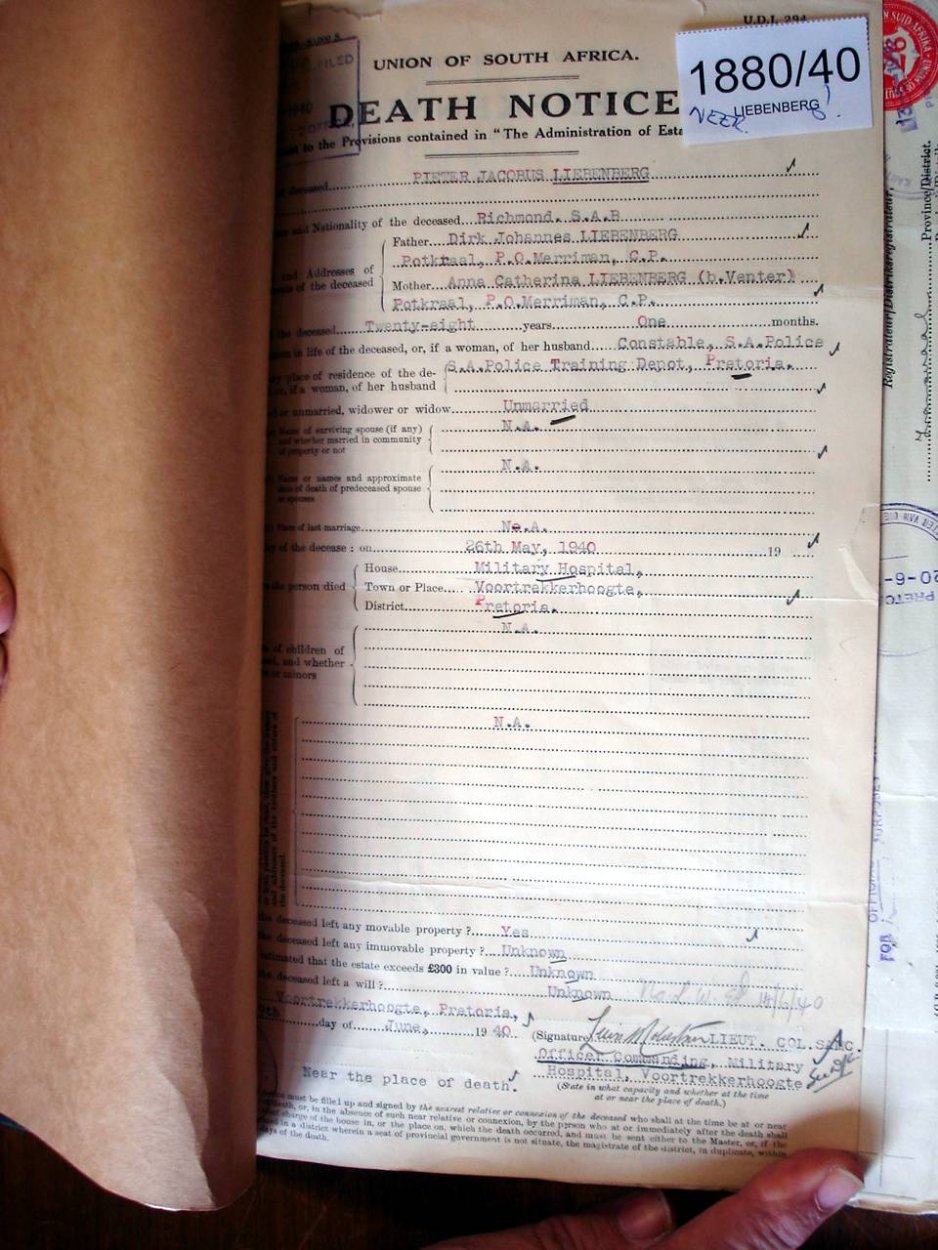 U.D.J. 294
UNION OF SOUTH AFRICA.
1880/40
LIEBENBERG
DEATH NOTICE
to the Provisions contained in "The Administration of Esta
deceased PIETER JACOBUS LIEBENBERG
and Nationality of the deceased Richmond. S.A.B
Father Dirk Johannes LIEBENBERG
Potkraal, P.O.Merriman, C.P.
and Addresses of
of the deceased
Mother Anna Catherina LIEBENBERG (b.Venter)
Potkraal, P.O.Merriman, C.P.
the deceased Twenty-eight years One months.
in life of the deceased, or, if a woman, of her husband Constable, S.A.Police
place of residence of the de-
if a woman, of her husband
S.A.Police Training Depot, Pretoria.
or unmarried, widower or widow Unmarried
Name of surviving spouse (if any)
and whether married in community
of property or not
N.A.
Name or names and approximate
date of death of predeceased spouse
or spouses
N.A.
Place of last marriage N.A.
of the decease : on 26th May, 1940 19
person died
House Military Hospital,
Town or Place Voortrekkerhoogte,
District Pretoria.
of children of
and whether
or minors
N.A.
N.A.
the deceased.
the deceased left any movable property ? Yes
the deceased left any immovable property ? Unknown
estimated that the estate exceeds £300 in value ? Unknown
the deceased left a will ? Unknown
Voortrekkerhoogte, Pretoria,
day of June, 19 40
(Signature) LIEUT. COL.
Officer Commanding, Military
Hospital, Voortrekkerhoogte
(State in what capacity and whether at the time
at or near the place of death.)
Near the place of death.
must be filled up and signed by the nearest relative or connexion of the deceased who shall at the time be at or near
death, or, in the absence of such near relative or connexion, by the person who at or immediately after the death shall
charge of the house in, or the place on, which the death occurred, and must be sent either to the Master, or, if the
in a district wherein a seat of provincial government is not situate, the magistrate of the district, in duplicate, within
days of the death.
Registrateur/Distriksregistrateur,
Province/District.
FOR